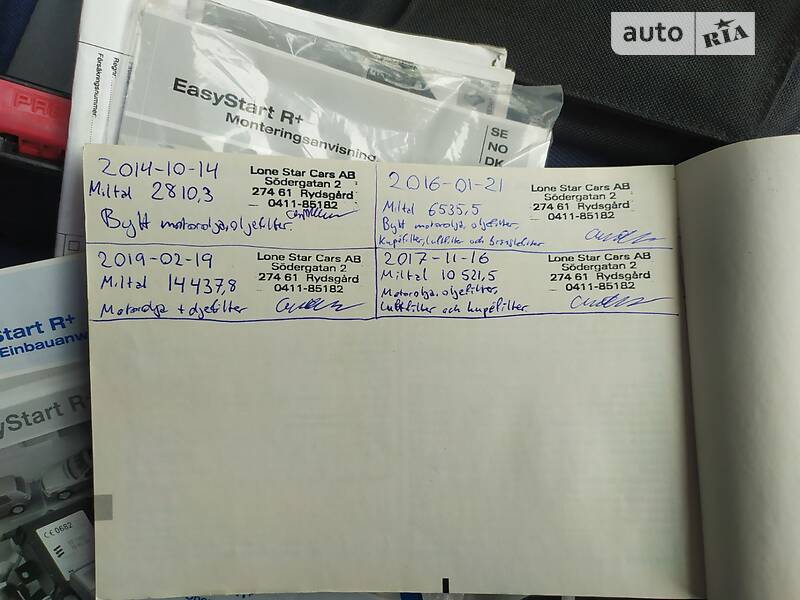 auto RIA
PR
Regnr
Försäkringsnummer
EasyStart R+
Monteringsanvisning
SE
NO
DK
2014-10-14
Miltal 2810,3
Bytt motorolja, oljefilter.
Lone Star Cars AB
Södergatan 2
274 61 Rydsgård
0411-85182
2016-01-21
Miltal 6535,5
Bytt motorolja, oljefilter,
Kupéfilter, luftfilter och bränslefilter
Lone Star Cars AB
Södergatan 2
274 61 Rydsgård
0411-85182
2019-02-19
Miltal 14437,8
Motorolja + oljefilter
Lone Star Cars AB
Södergatan 2
274 61 Rydsgård
0411-85182
2017-11-16
Miltal 10521,5
Motorolja, oljefilter,
Luftfilter och kupéfilter.
Lone Star Cars AB
Södergatan 2
274 61 Rydsgård
0411-85182
Start R+
Einbauanw
yStart R+
CE0682